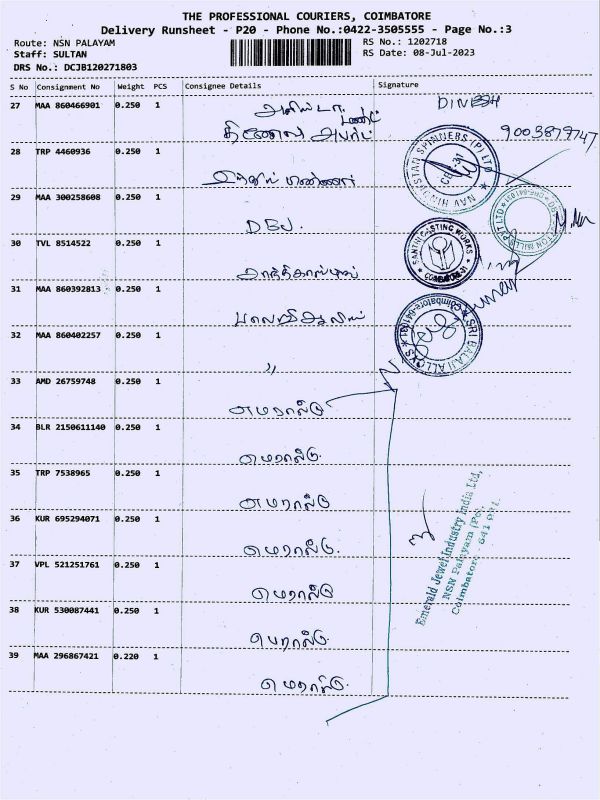 THE PROFESSIONAL COURIERS, COIMBATORE
Delivery Runsheet - P20 - Phone No.:0422-3505555 - Page No.:3
Route: NSN PALAYAM
Staff: SULTAN
DRS No.: DCJB120271803
RS No.: 1202718
RS Date: 08-Jul-2023
S No Consignment No Weight PCS Consignee Details Signature
27 MAA 860466901 0.250 1
DINESH
9003879747
28 TRP 4460936 0.250 1
NAV HINDUSTAN SPINNERS (P) LTD
29 MAA 300258608 0.250 1
30 TVL 8514522 0.250 1
SANTHI CASTING WORKS
COIMBATORE
31 MAA 860392813 1
32 MAA 860402257 0.250 1
"
SRI BALAJI ALLOYS
Coimbatore-641
33 AMD 26759748 0.250 1
எமரால்டு
34 BLR 2150611140 0.250 1
எமரால்டு.
35 TRP 7538965 0.250 1
எமரால்டு
36 KUR 695294071 0.250 1
எமரால்டு.
37 VPL 521251761 0.250 1
எமரால்டு
38 KUR 530087441 0.250 1
எமரால்டு.
39 MAA 296867421 0.220 1
எமரால்டு.
Emerald Jewel Industry India Ltd,
NSN Palayam (Po),
Coimbatore - 641 031.